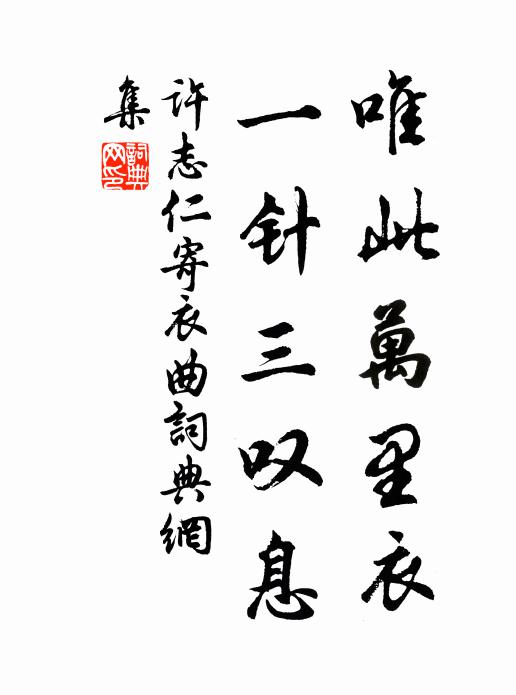 唯此萬里衣
一针三叹息
許志仁寄衣曲詞典網
集
詞典網印